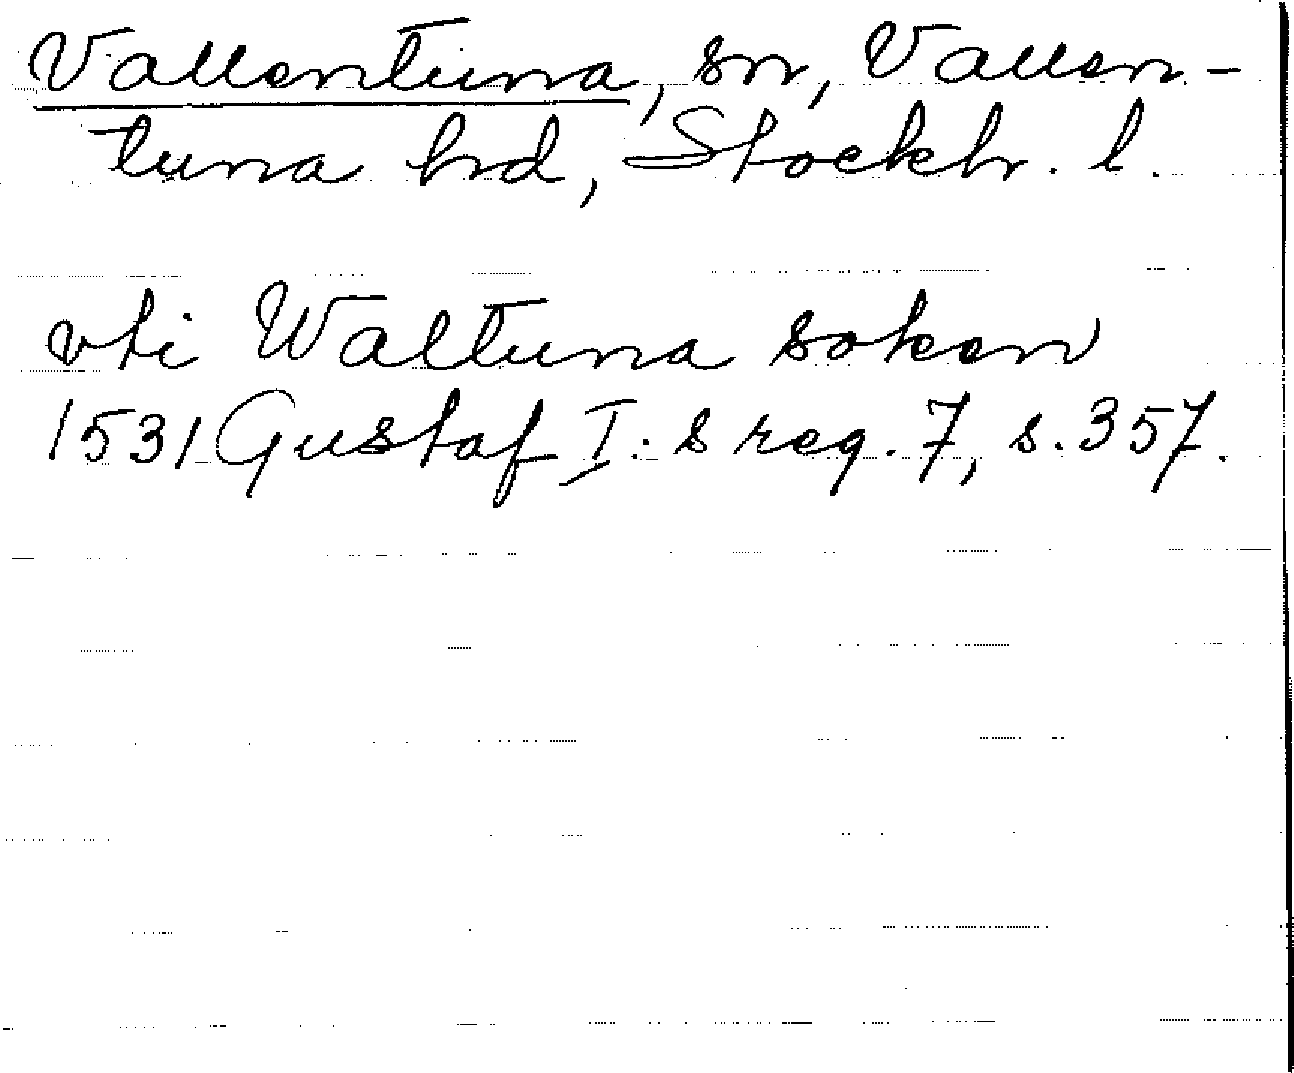 Vallentuna, sn, Vallen-
tuna hd, Stockh. l.
vti Waltuna soken
1531 Gustaf I:s reg. 7, s. 357.